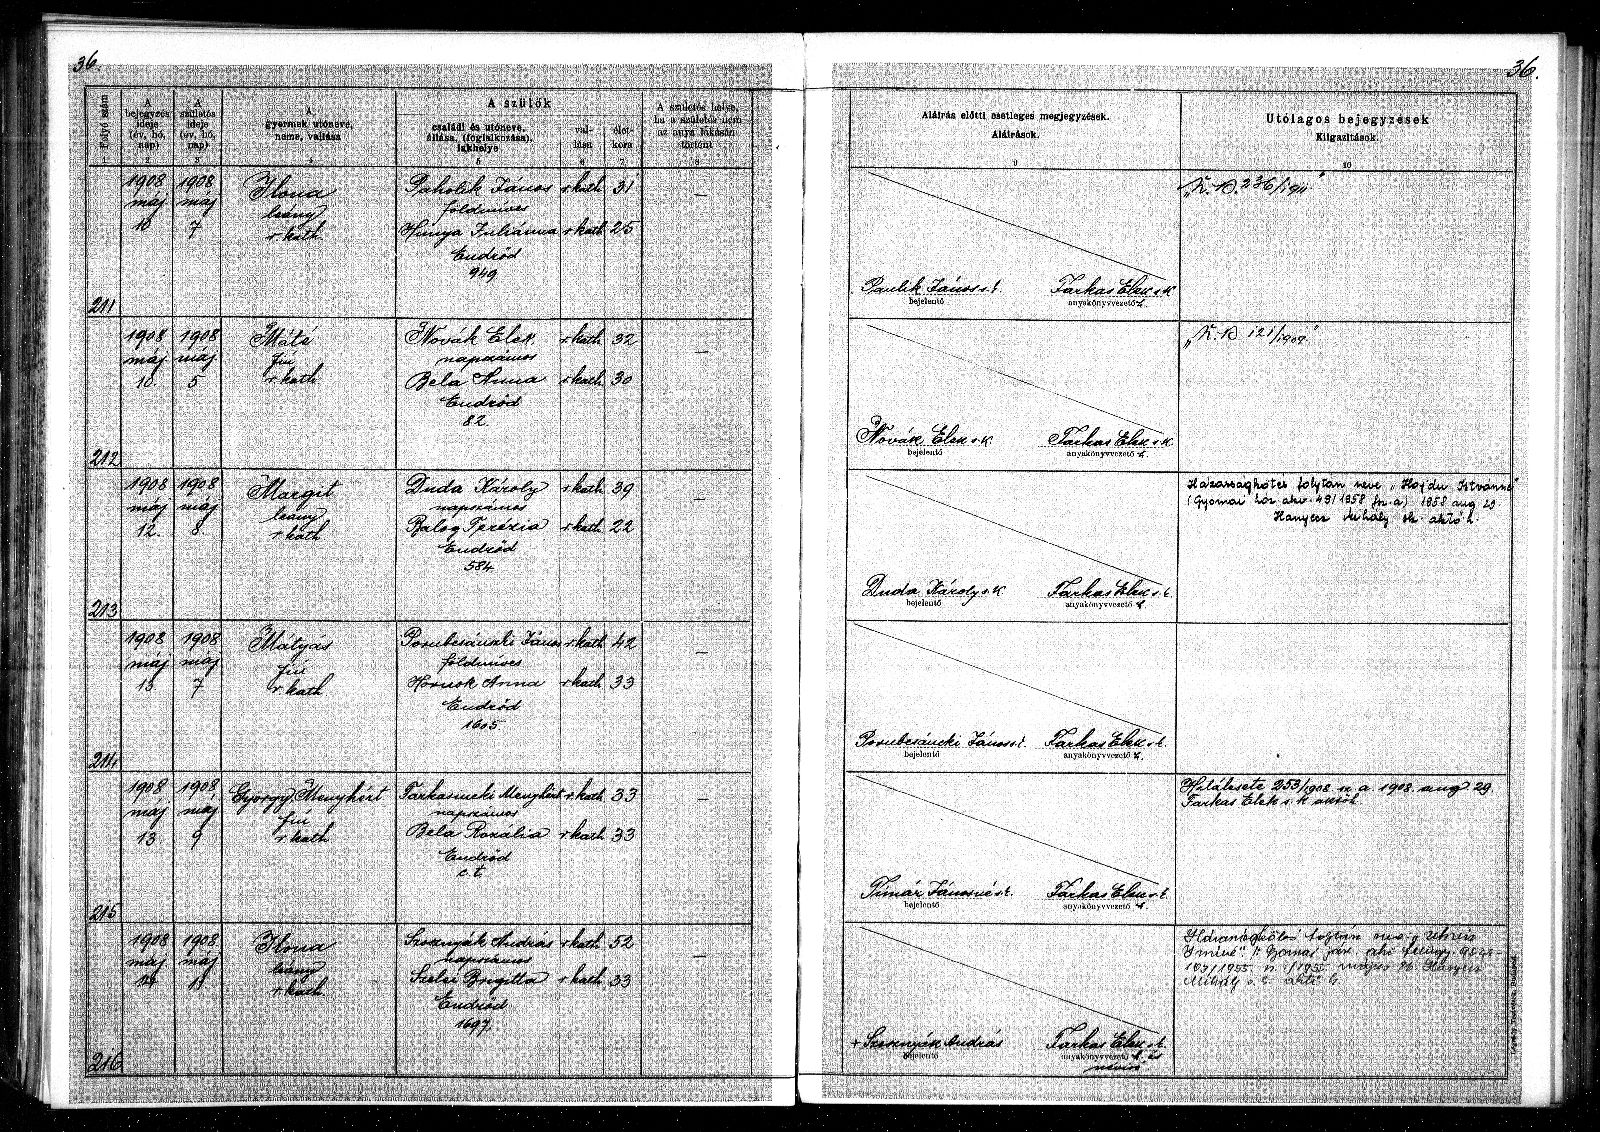 36.
36.
Folyó szám
A bejegyzés ideje (év, hó, nap)
A születés ideje (év, hó, nap)
A gyermek utóneve, neme, vallása
A szülők
családi és utóneve, állása, (foglalkozása), lakhelye
vallása
életkora
A születés helye, ha a szülőnek nem az anya lakásán történt
Aláírás előtti esetleges megjegyzések.
Aláírások.
Utólagos bejegyzések
Kiigazítások.
9
10
211
1908 máj 10
1908 máj 7
Ilona
leány
r. kath
Paholik János r. kath 31
földmíves
Hunya Juliánna r. kath 25
Endrőd
949
Paulik János s. k.
bejelentő
Farkas Elek s. k.
anyakönyvvezető
"K. B. 236/1911"
212
1908 máj 10.
1908 máj 5
Máté
fiú
r. kath
Novák Elek r. kath 32
napszámos
Bela Anna r. kath 30
Endrőd
82.
Novák Elek s. k.
bejelentő
Farkas Elek s. k.
anyakönyvvezető
"K. B 121/1909"
213
1908 máj 12.
1908 máj 8.
Margit
leány
r. kath
Duda Károly r. kath 39
napszámos
Balog Terézia r. kath 22
Endrőd
584.
Duda Károly s. k.
bejelentő
Farkas Elek s. k.
anyakönyvvezető
Házasságkötés folytán neve "Hajdu Istvánné"
(Gyomai ház. akv. 49/1958 fsz. a) 1958 aug 25
Hanyecz Mihály
214
1908 máj 13
1908 máj 7
Mátyás
fiú
r. kath
Porubcsánszki János r. kath 42
földmíves
Hornok Anna r. kath 33
Endrőd
1605
Porubcsáncki János s. k.
bejelentő
Farkas Elek s. k.
anyakönyvvezető
215
1908 máj 13
1908 máj 9
György Menyhért
fiú
r. kath
Farkasincki Menyhért r. kath 33
napszámos
Bela Rozália r. kath 33
Endrőd
c. t.
Timár Jánosné s. k.
bejelentő
Farkas Elek s. k.
anyakönyvvezető
Halálesete 253/1908 sz. a. 1908. aug 29
Farkas Elek s. k.
216
1908 máj
1908. máj
Ilona
leány
r. kath.
Szosznyák András r. kath 52
napszámos
Brigitta r. kath 33
Endrőd
1697.
+ Szosznyák András
bejelentő
Farkas Elek s. k.
anyakönyvvezető és
névíró
Mihály